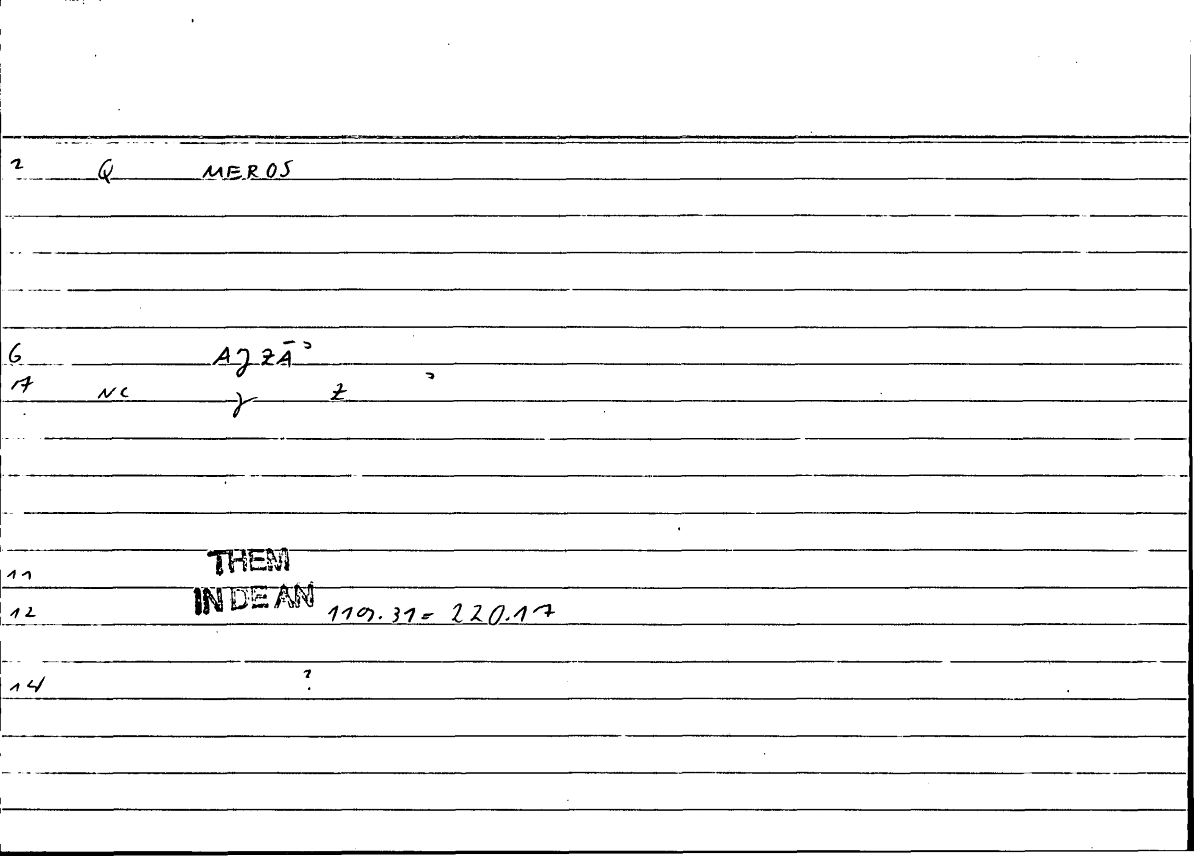 2 Q MEROS
6 AȜZĀʾ
17 NC ȝ Z ʾ
11 THEM
12 IN DE AN 119.31 = 220.17
14 ?